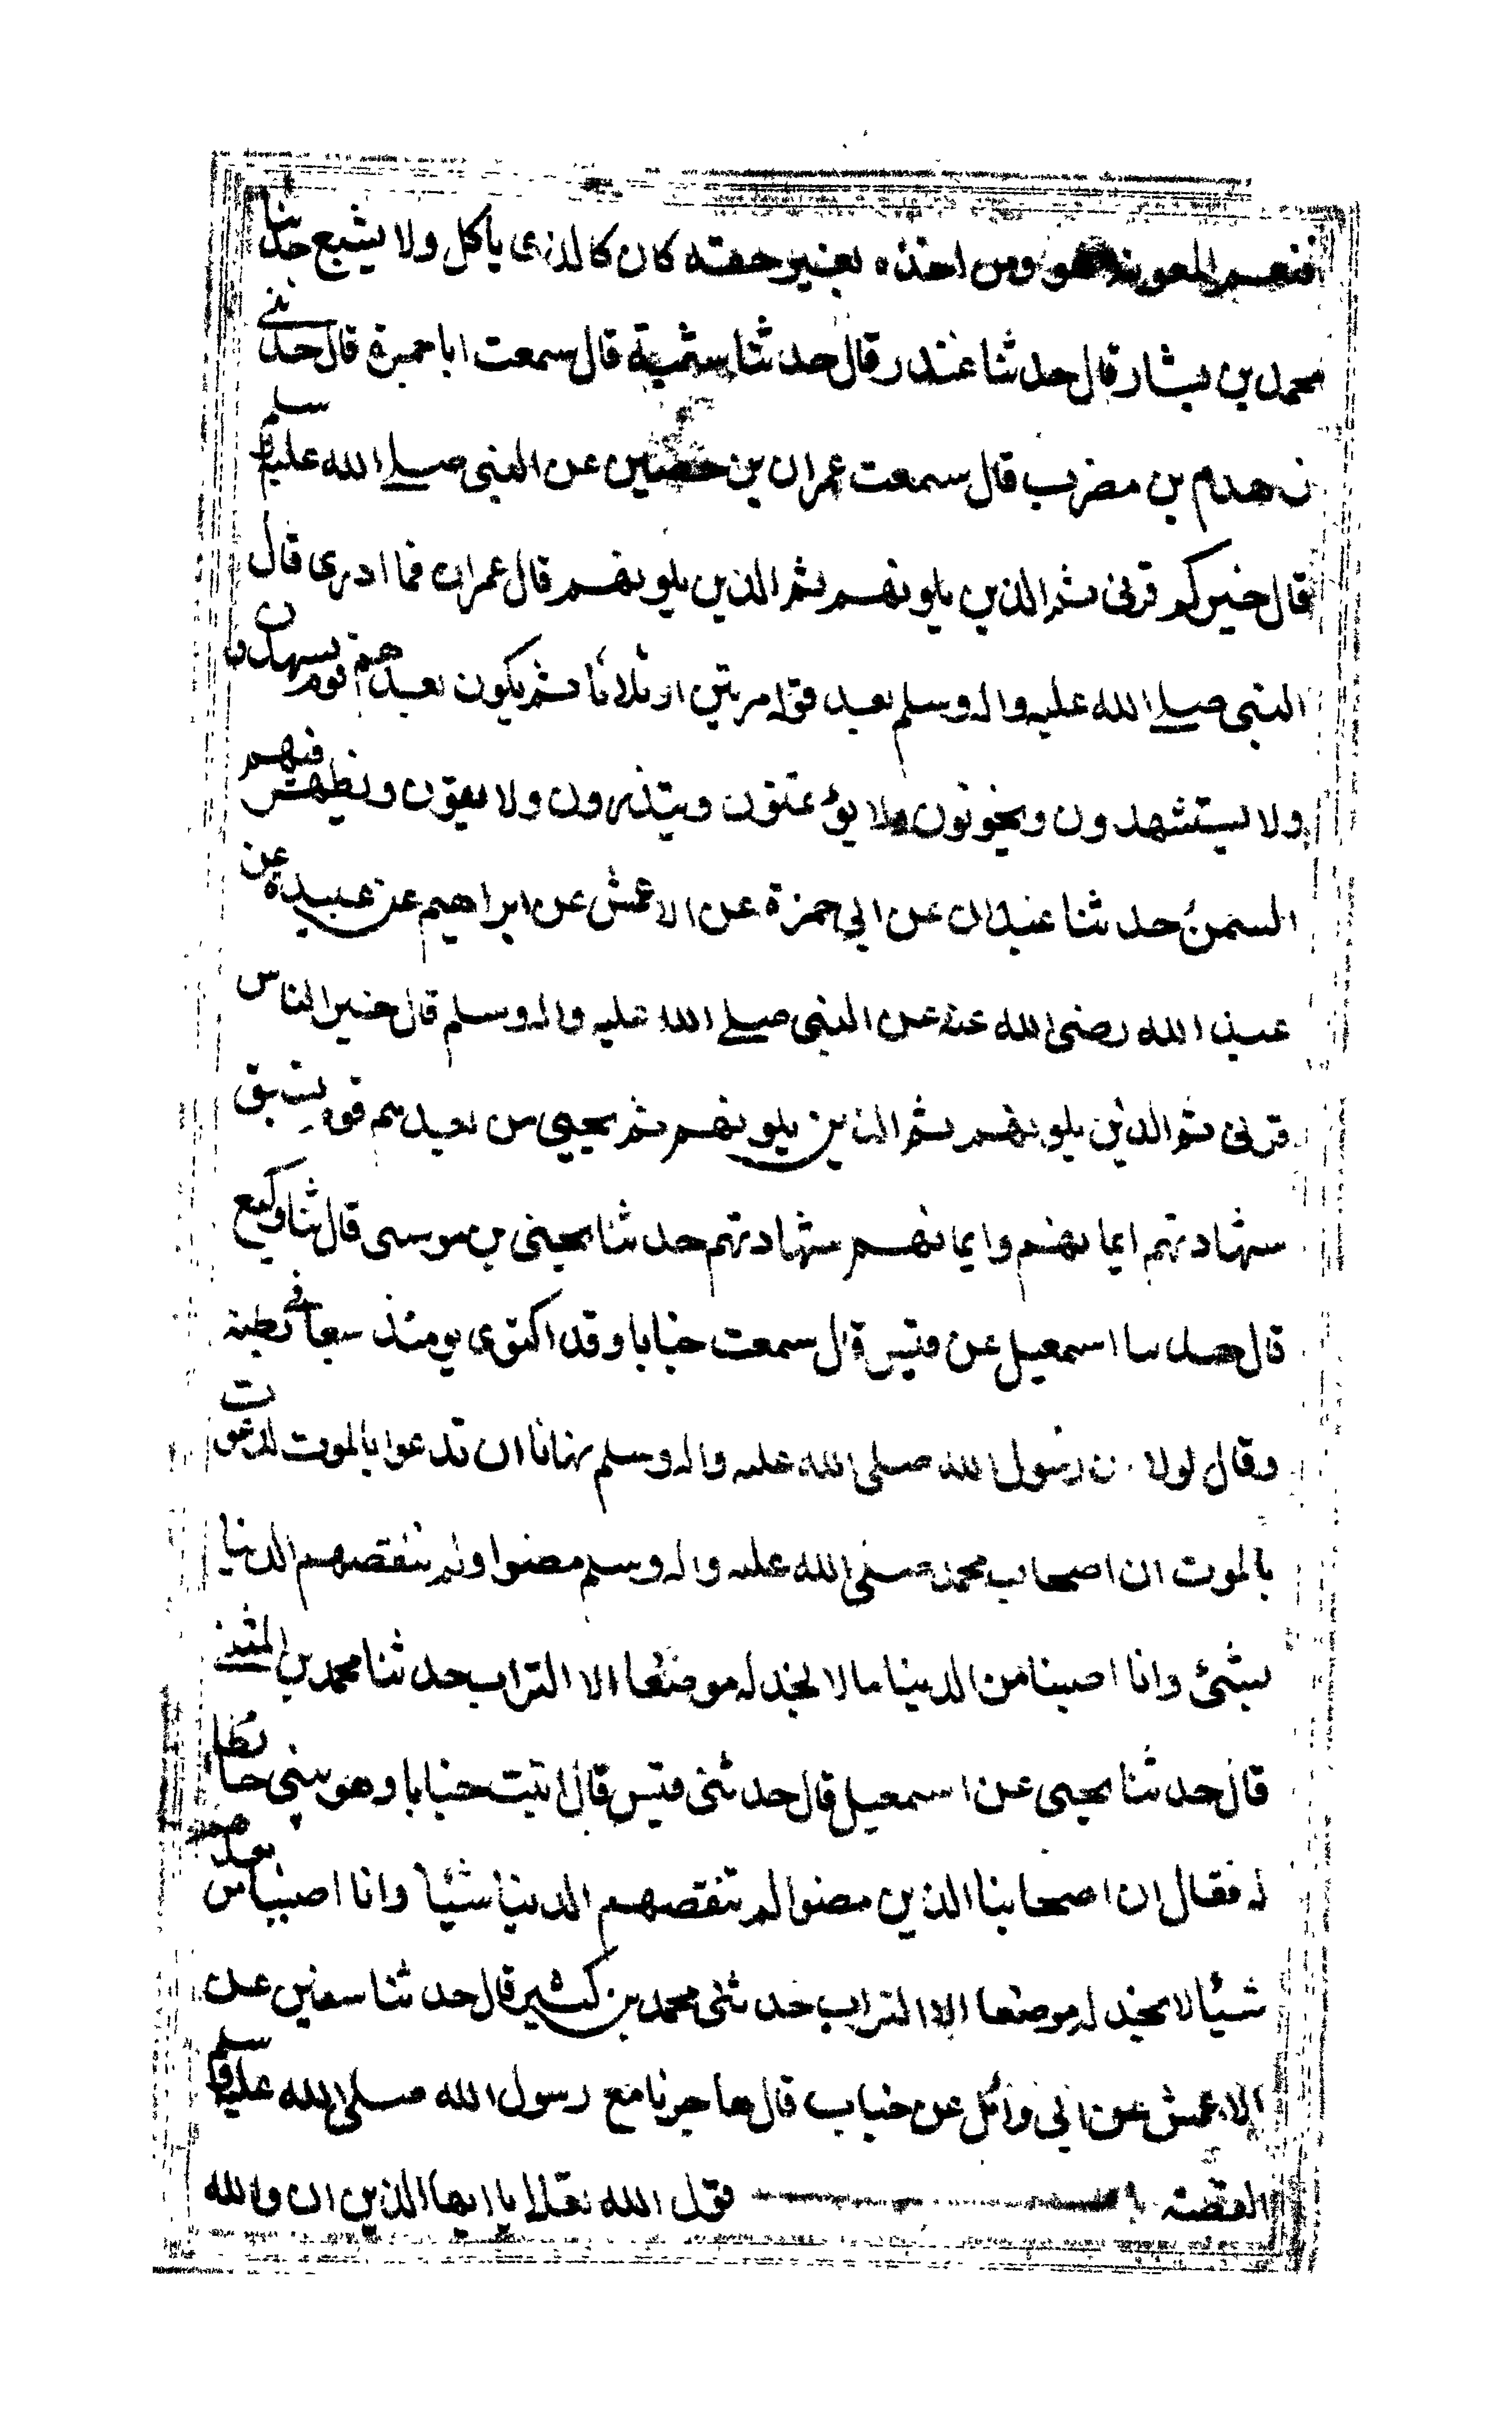 فنعم المعونة هو ومن اخذه بغير حقه كان كالذى ياكل ولا يشبع حدثنا
محمد بن بشار قال حدثنا غندر قال حدثنا شعبة قال سمعت ابا حمزة قال حدثنى
زهدم بن مضرب قال سمعت عمران بن حصين عن النبى صلى الله عليه وسلم
قال خيركم قرنى ثم الذين يلونهم ثم الذين يلونهم قال عمران فما ادرى قال
النبى صلى الله عليه واله وسلم بعد قوله مرتين او ثلاثا ثم يكون بعدهم قوم يشهدون
ولا يستشهدون ويخونون ولا يؤتمنون وينذرون ولا يفون ويظهر فيهم
السمن حدثنا عبدان عن ابي حمزة عن الاعمش عن ابراهيم عن عبيدة عن
عبد الله رضى الله عنه عن النبى صلى الله عليه واله وسلم قال خير الناس
قرنى ثم الذين يلونهم ثم الذين يلونهم ثم يجيى من بعدهم قوم تسبق
شهادتهم ايمانهم وايمانهم شهادتهم حدثنا يحيى بن موسى قال ثنا وكيع
قال حدثنا اسمعيل عن قيس قال سمعت خبابا وقد اكتوى يومئذ سبعا فى بطنه
وقال لولا ان رسول الله صلى الله عليه واله وسلم نهانا ان ندعوا بالموت لدعوت
بالموت ان اصحاب محمد صلى الله عليه واله وسلم مضوا ولم تنقصهم الدنيا
بشئ وانا اصبنا من الدنيا ما لا نجد له موضعا الا التراب حدثنا محمد بن المثنى
قال حدثنا يحيى عن اسمعيل قال حدثنى قيس قال اتيت خبابا وهو يبنى حائطا
له فقال ان اصحابنا الذين مضوا لم تنقصهم الدنيا شيئا وانا اصبنا من بعدهم
شيئا لا نجد له موضعا الا التراب حدثنى محمد بن كثير قال حدثنا سفين عن
الاعمش عن ابى وائل عن خباب قال هاجرنا مع رسول الله صلى الله عليه وسلم
القصة باب قول الله تعالى يا ايها الذين ان والله